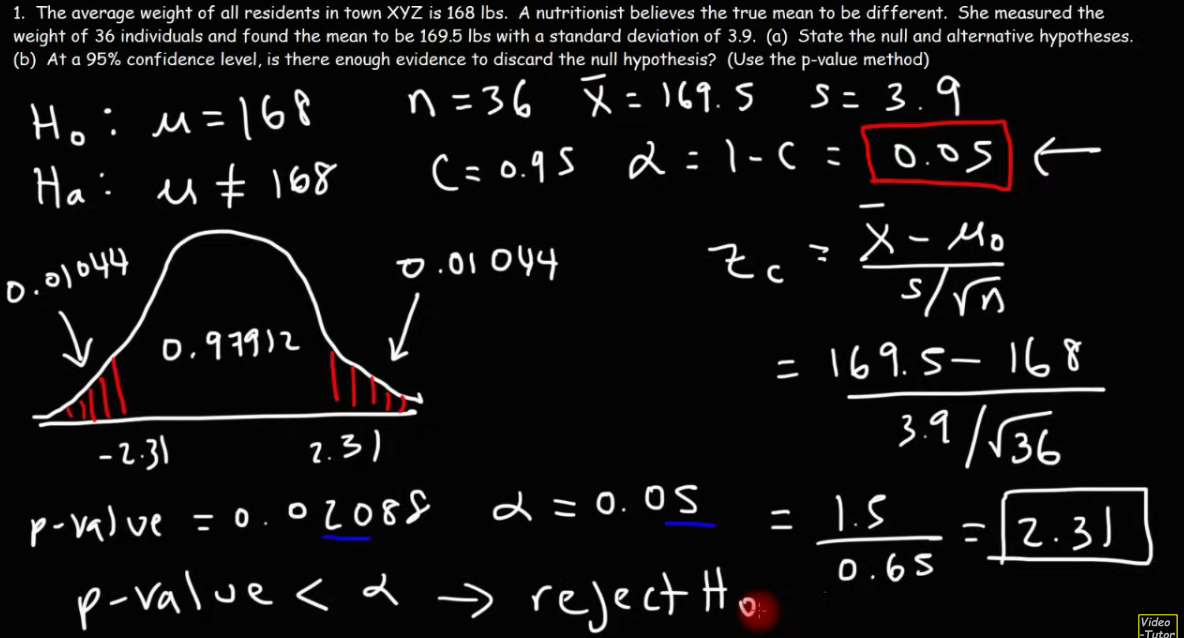 1. The average weight of all residents in town XYZ is 168 lbs. A nutritionist believes the true mean to be different. She measured the
weight of 36 individuals and found the mean to be 169.5 lbs with a standard deviation of 3.9. (a) State the null and alternative hypotheses.
(b) At a 95% confidence level, is there enough evidence to discard the null hypothesis? (Use the p-value method)
H₀: μ = 168
n = 36 x̄ = 169.5 s = 3.9
Ha: μ ≠ 168
C = 0.95 α = 1 - C = 0.05 ←
0.01044
0.01044
0.97912
-2.31 2.31
Zc = x̄ - μ₀ / s/√n
= 169.5 - 168 / 3.9/√36
= 1.5 / 0.65 = 2.31
p-value = 0.02088 α = 0.05
p-value < α → reject H₀
Video
-Tutor